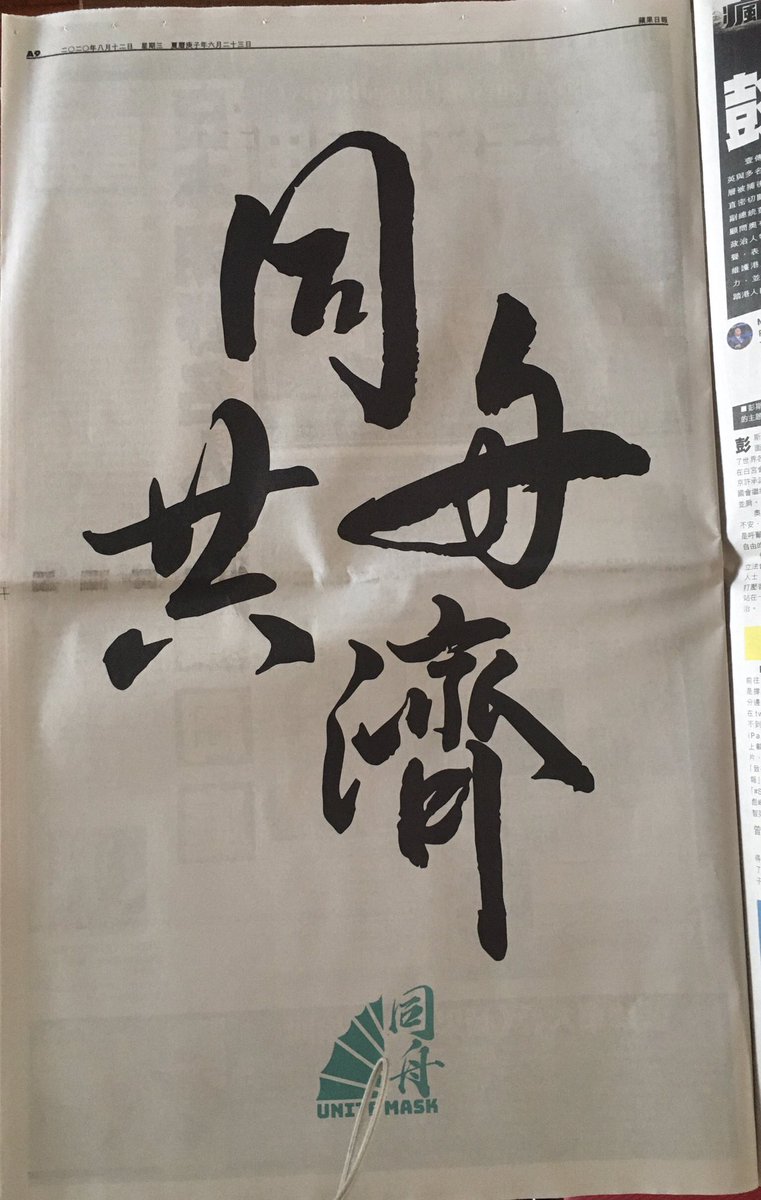 A9 二〇二〇年八月十二日 星期三 夏曆庚子年六月二十三日
蘋果日報
同
舟
共
濟
同舟
UNITE MASK
彭
壹傳
英與多名
層被捕後
直密切關
副總統
顧問奧
政治人
聲，表
維護港
力，並
踏港人
■彭斯
的主題
彭斯
了世界
在白宮
京許承
國會繼續
並肩。
奧
不安，
是呼籲
自由的
立法會
人士
打壓
站在一
治。
前往
是撐
分邊
在tw
不到
(Pa
上載
片，
「致
報」